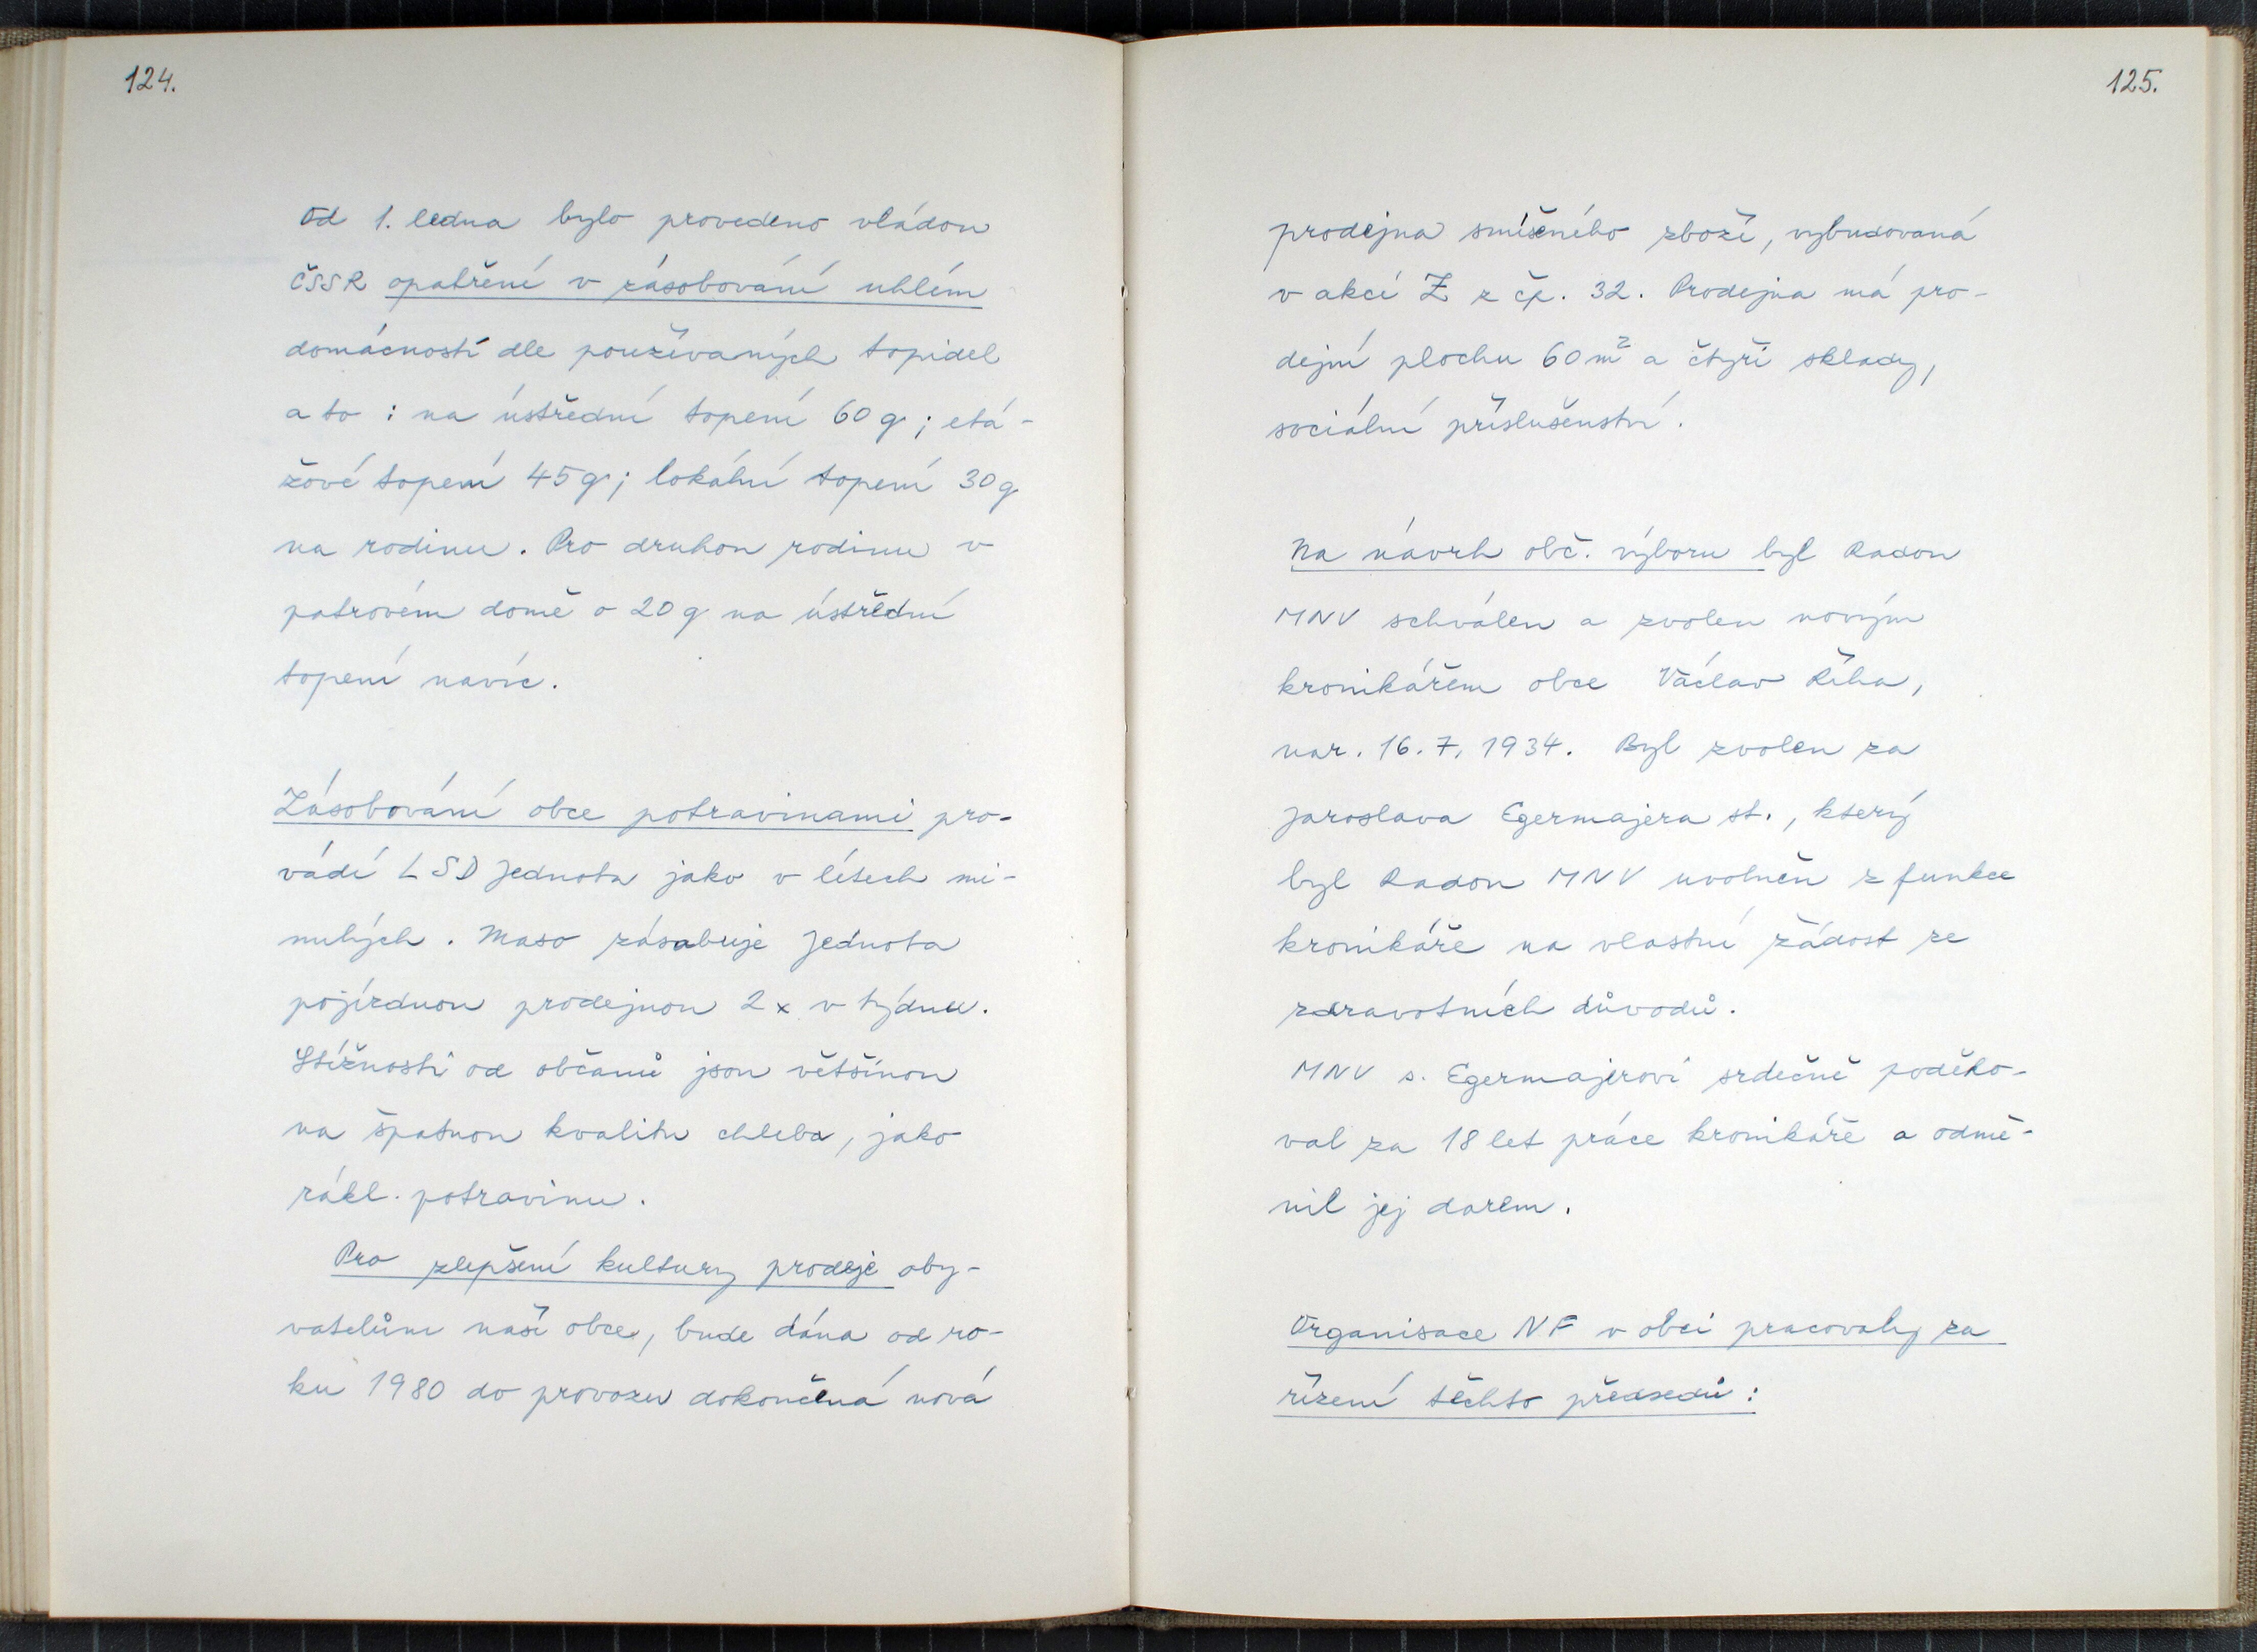 124.
Od 1. ledna bylo provedeno vládou
ČSSR opatření v zásobování uhlím
domácností dle používaných topidel
a to : na ústřední topení 60 q ; etá-
žové topení 45 q ; lokální topení 30 q
na rodinu. Pro druhou rodinu v
patrovém domě o 20 q na ústřední
topení navíc.
Zásobování obce potravinami pro-
vádí LSD Jednota jako v létech mi-
nulých. Maso zásobuje Jednota
pojízdnou prodejnou 2x v týdnu.
Stížnosti od občanů jsou většinou
na špatnou kvalitu chleba, jako
zákl. potravinu.
Pro zlepšení kultury prodeje oby-
vatelům naší obce, bude dána od ro-
ku 1980 do provozu dokončená nová
125.
prodejna smíšeného zboží, vybudovaná
v akci Z z čp. 32. Prodejna má pro-
dejní plochu 60 m² a čtyři sklady,
sociální příslušenství.
Na návrh obč. výboru byl Radou
MNV schválen a zvolen novým
kronikářem obce Václav Říha,
nar. 16. 7. 1934. Byl zvolen za
Jaroslava Egermajera st., který
byl Radou MNV uvolněn z funkce
kronikáře na vlastní žádost ze
zdravotních důvodů.
MNV s. Egermajerovi srdečně poděko-
val za 18 let práce kronikáře a odmě-
nil jej darem.
Organisace NF v obci pracovaly za
řízení těchto předsedů :